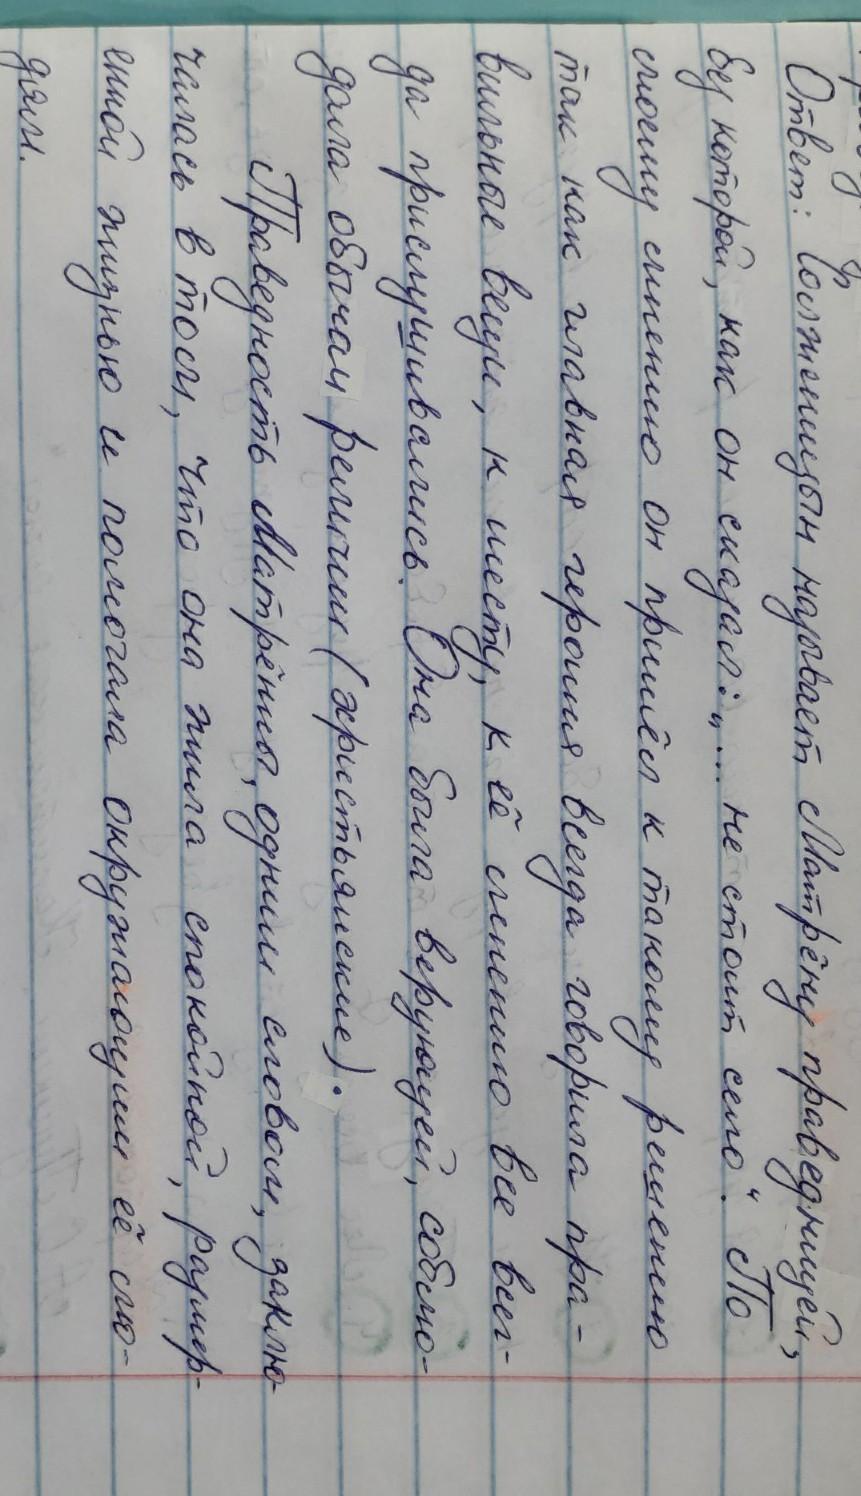 Ответ: Солженицын называет Матрёну праведницей,
без которой, как он сказал: „... не стоит село". По
моему мнению он пришёл к такому решению
так как главная героиня всегда говорила пра-
вильные вещи, к месту, к её мнению все всег-
да прислушивались. Она была верующей, соблю-
дала обычаи религии (христьянские).
Праведность Матрёны, одним словом, заклю-
чалась в том, что она жила спокойной, размер-
енной жизнью и помогала окружающим её лю-
дям.